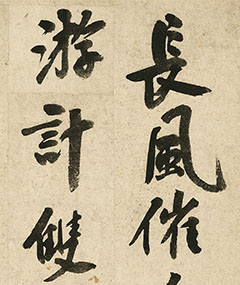 長風催
游計雙